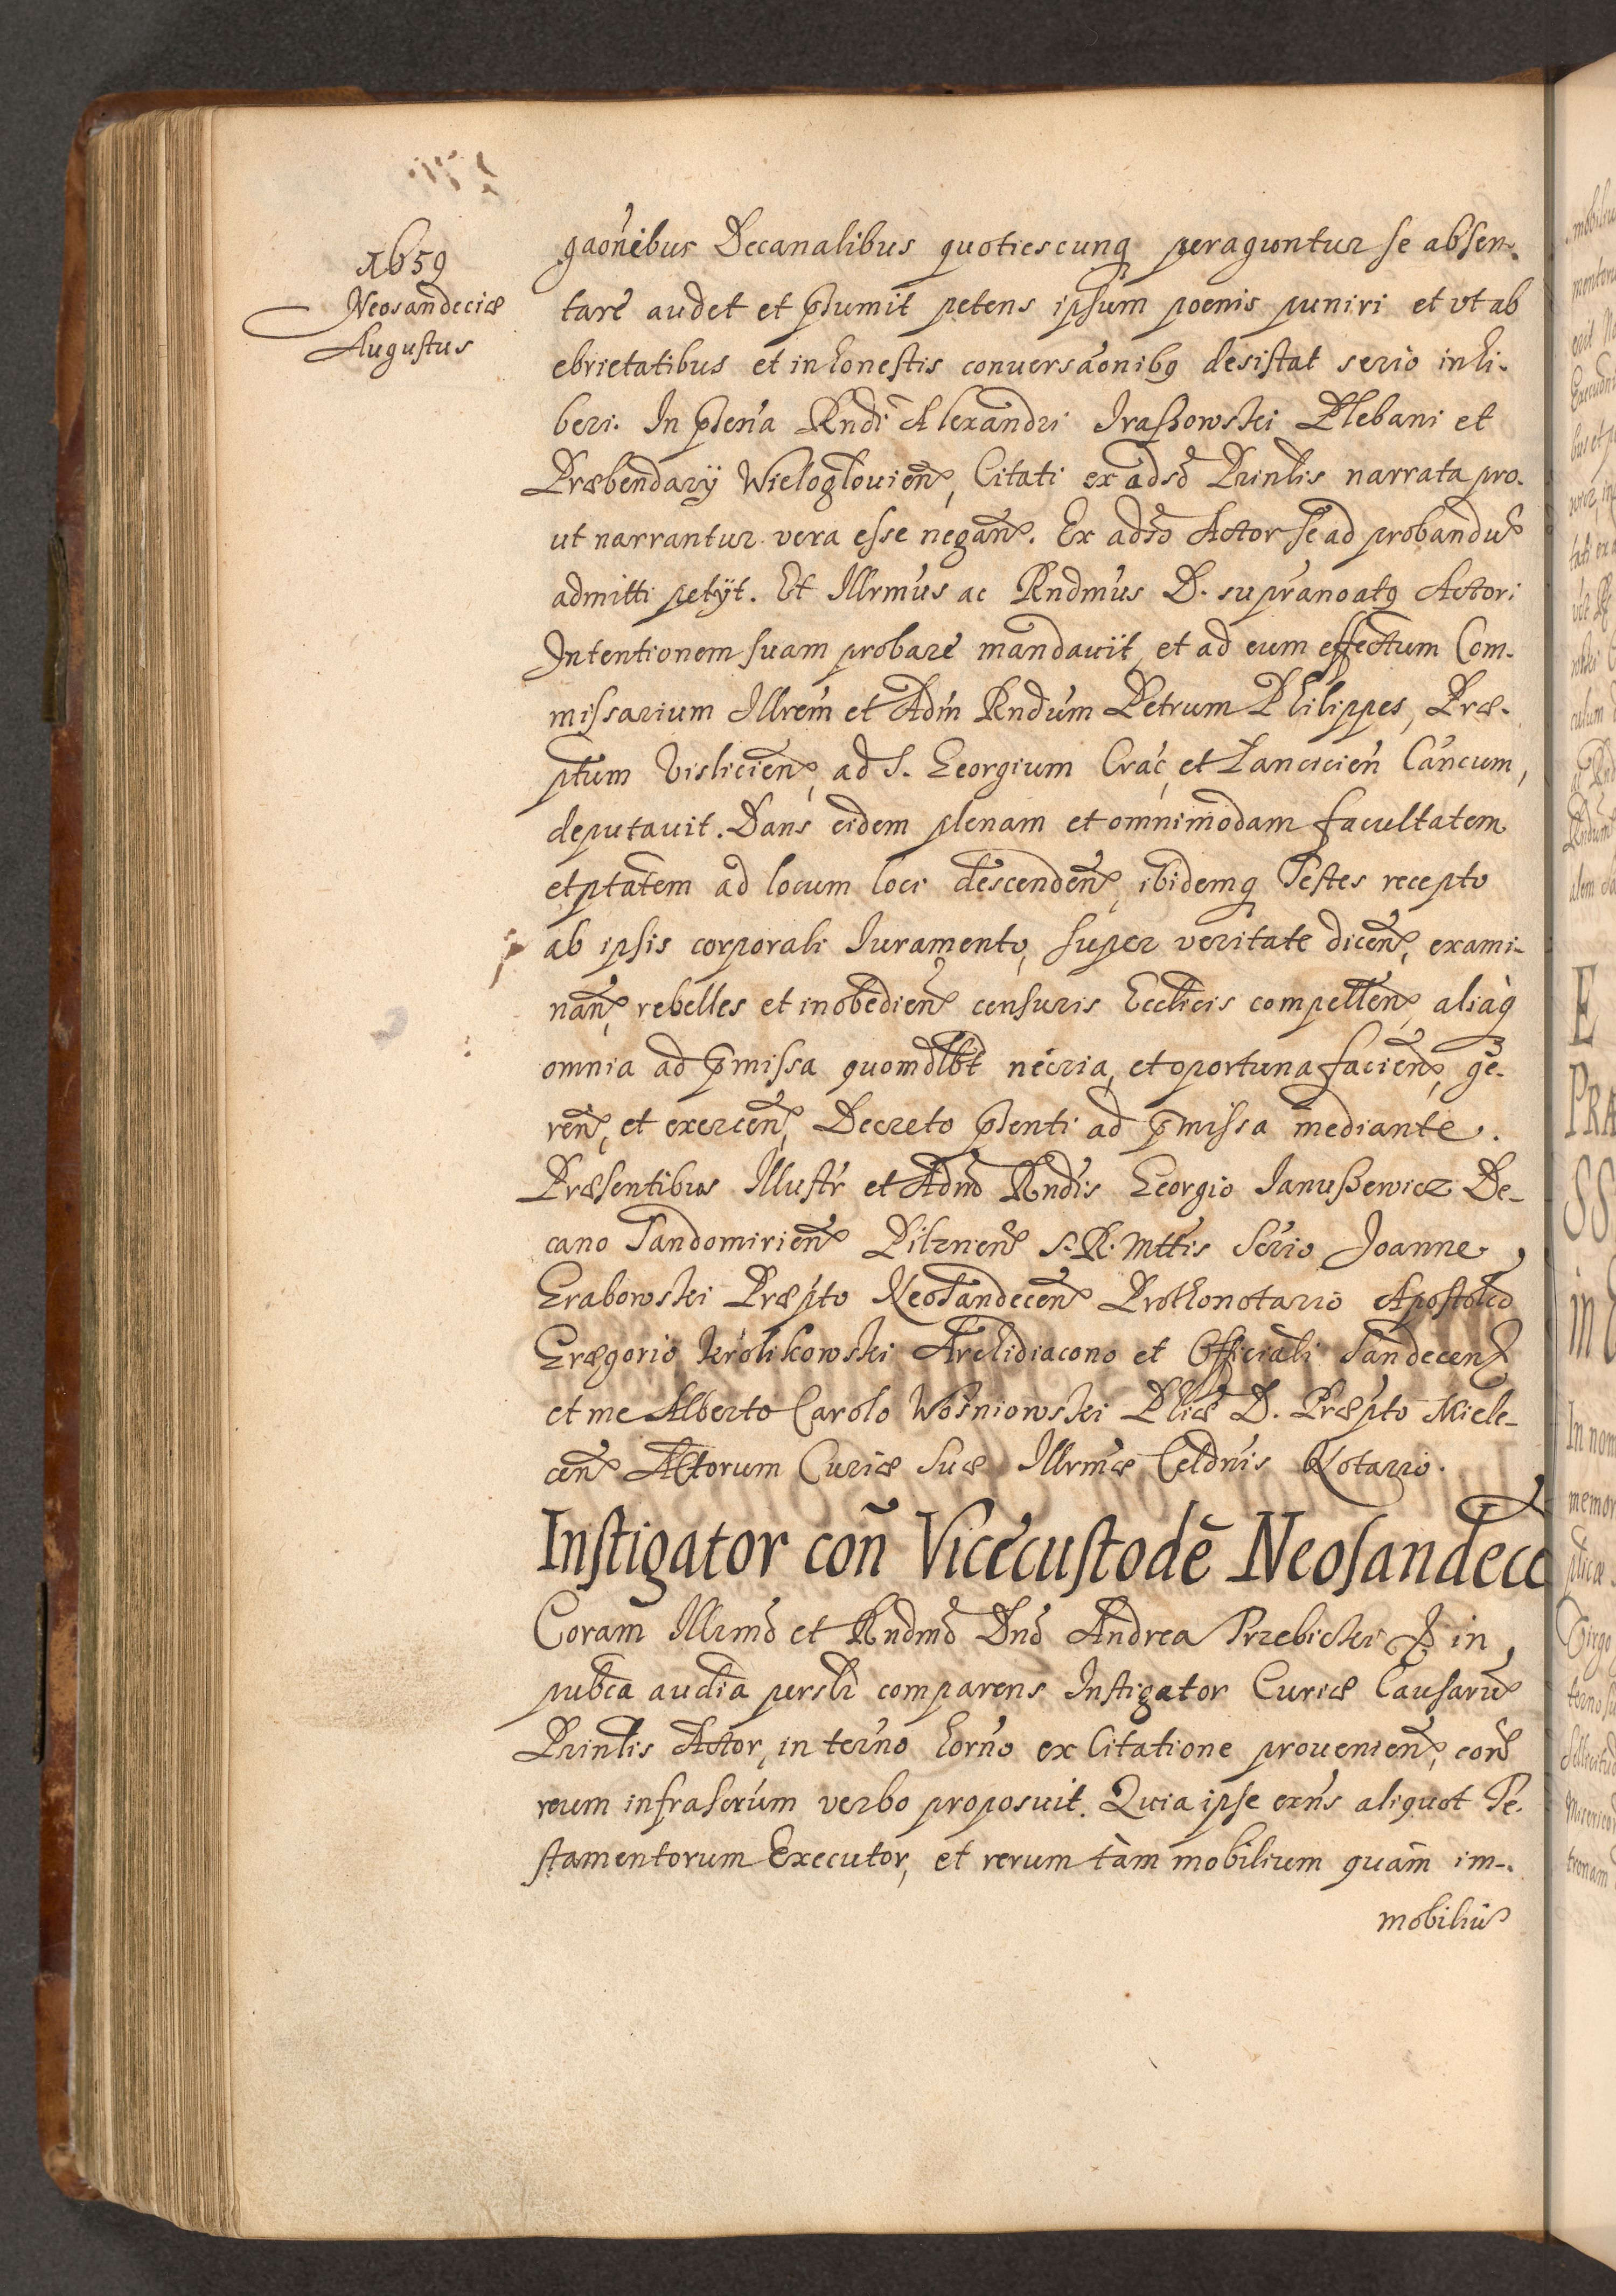 1659
Neosandeciæ
Augustus
gaõnibus Decanalibus quotiescunq peraguntur se absen-
tare audet et p̃sumit petens ipsum poenis puniri et vt ab
ebrietatibus et inhonestis conuersaõnibq desistat serio inhi-
beri. In p̃sen̄a Rndi Alexandri Iraszowski Plebani et
Præbendarÿ Wieloglouien̄, Citati ex adso Prin̄lis narrata pro-
ut narrantur vera esse negan̄. Ex adso Actor se ad probandū
admitti petÿt. Et Illrmus ac Rndmus D. supranoatq Actori
Intentionem suam probare mandauit, et ad eum effectum Com-
missarium Illrem et Adm Rndum Petrum Philippes, Præ-
ptum Visliciен̄, ad S. Georgium Crac̄, et Lancicien̄ Cancum,
deputauit. Dans eidem plenam et omnimodam facultatem
et ptatem ad locum loci descenden̄, ibidemq Testes recepto
ab ipsis corporali Iuramento, super veritate dicen̄, exami-
nan̄, rebelles et inobedien̄ censuris Ecclicis compellen̄, aliaq
omnia ad p̃missa quomdlbt necria, et oportuna facien̄, ge-
ren̄, et exercen̄, Decreto p̃senti ad p̃missa mediante.
Præsentibus Illustr et Adm Rndis Georgio Ianuszewicz De-
cano Sandomirien̄ Pilznen̄ S. R. Mttis Serio Joanne
Grabowski Præpto Neosandecen̄ Prothonotario Apostolco
Grægorio Krolikowski Archidiacono et Officiali Sandecen̄
et me Alberto Carolo Wosniowski Pliæ D. Præpto Miele-
cen̄ Actorum Curiæ Suæ Illrmæ Celdnis Notario.
Instigator con̄ Vicecustodē Neosandece
Coram Illrmo et Rndmo Dno Andrea Trzebicki & in
pubca audia persli comparens Instigator Curiæ Causarū
Prin̄lis Actor, in terno horno ex Citatione prouenien̄, con̄
reum infrascrum verbo proposuit. Quia ipse exns aliquot Te-
stamentorum Executor, et rerum tàm mobilium quàm im-
mobiliū